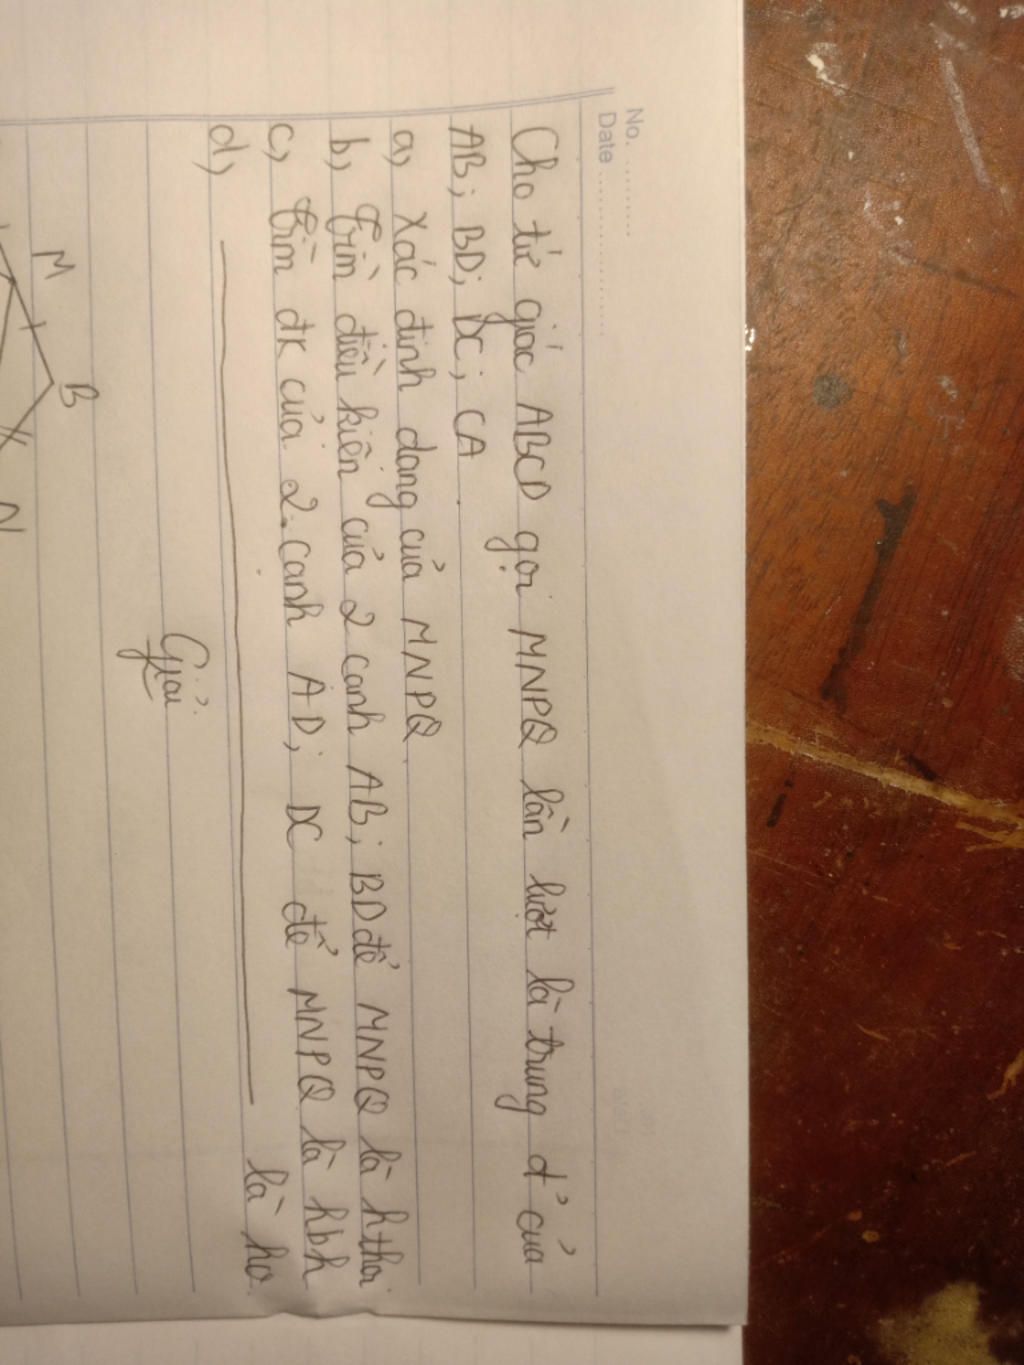 No. ..........
Date .....................
Cho tứ giác ABCD gọi MNPQ lần lượt là trung đ' của
AB; BD; DC; CA.
a, Xác định dạng của MNPQ.
b, Tìm điều kiện của 2 cạnh AB; BD để MNPQ là hthoi
c, Tìm đk của 2 cạnh AD; DC để MNPQ là hbh
d, ______________ là hv.
Giải
M
B
N